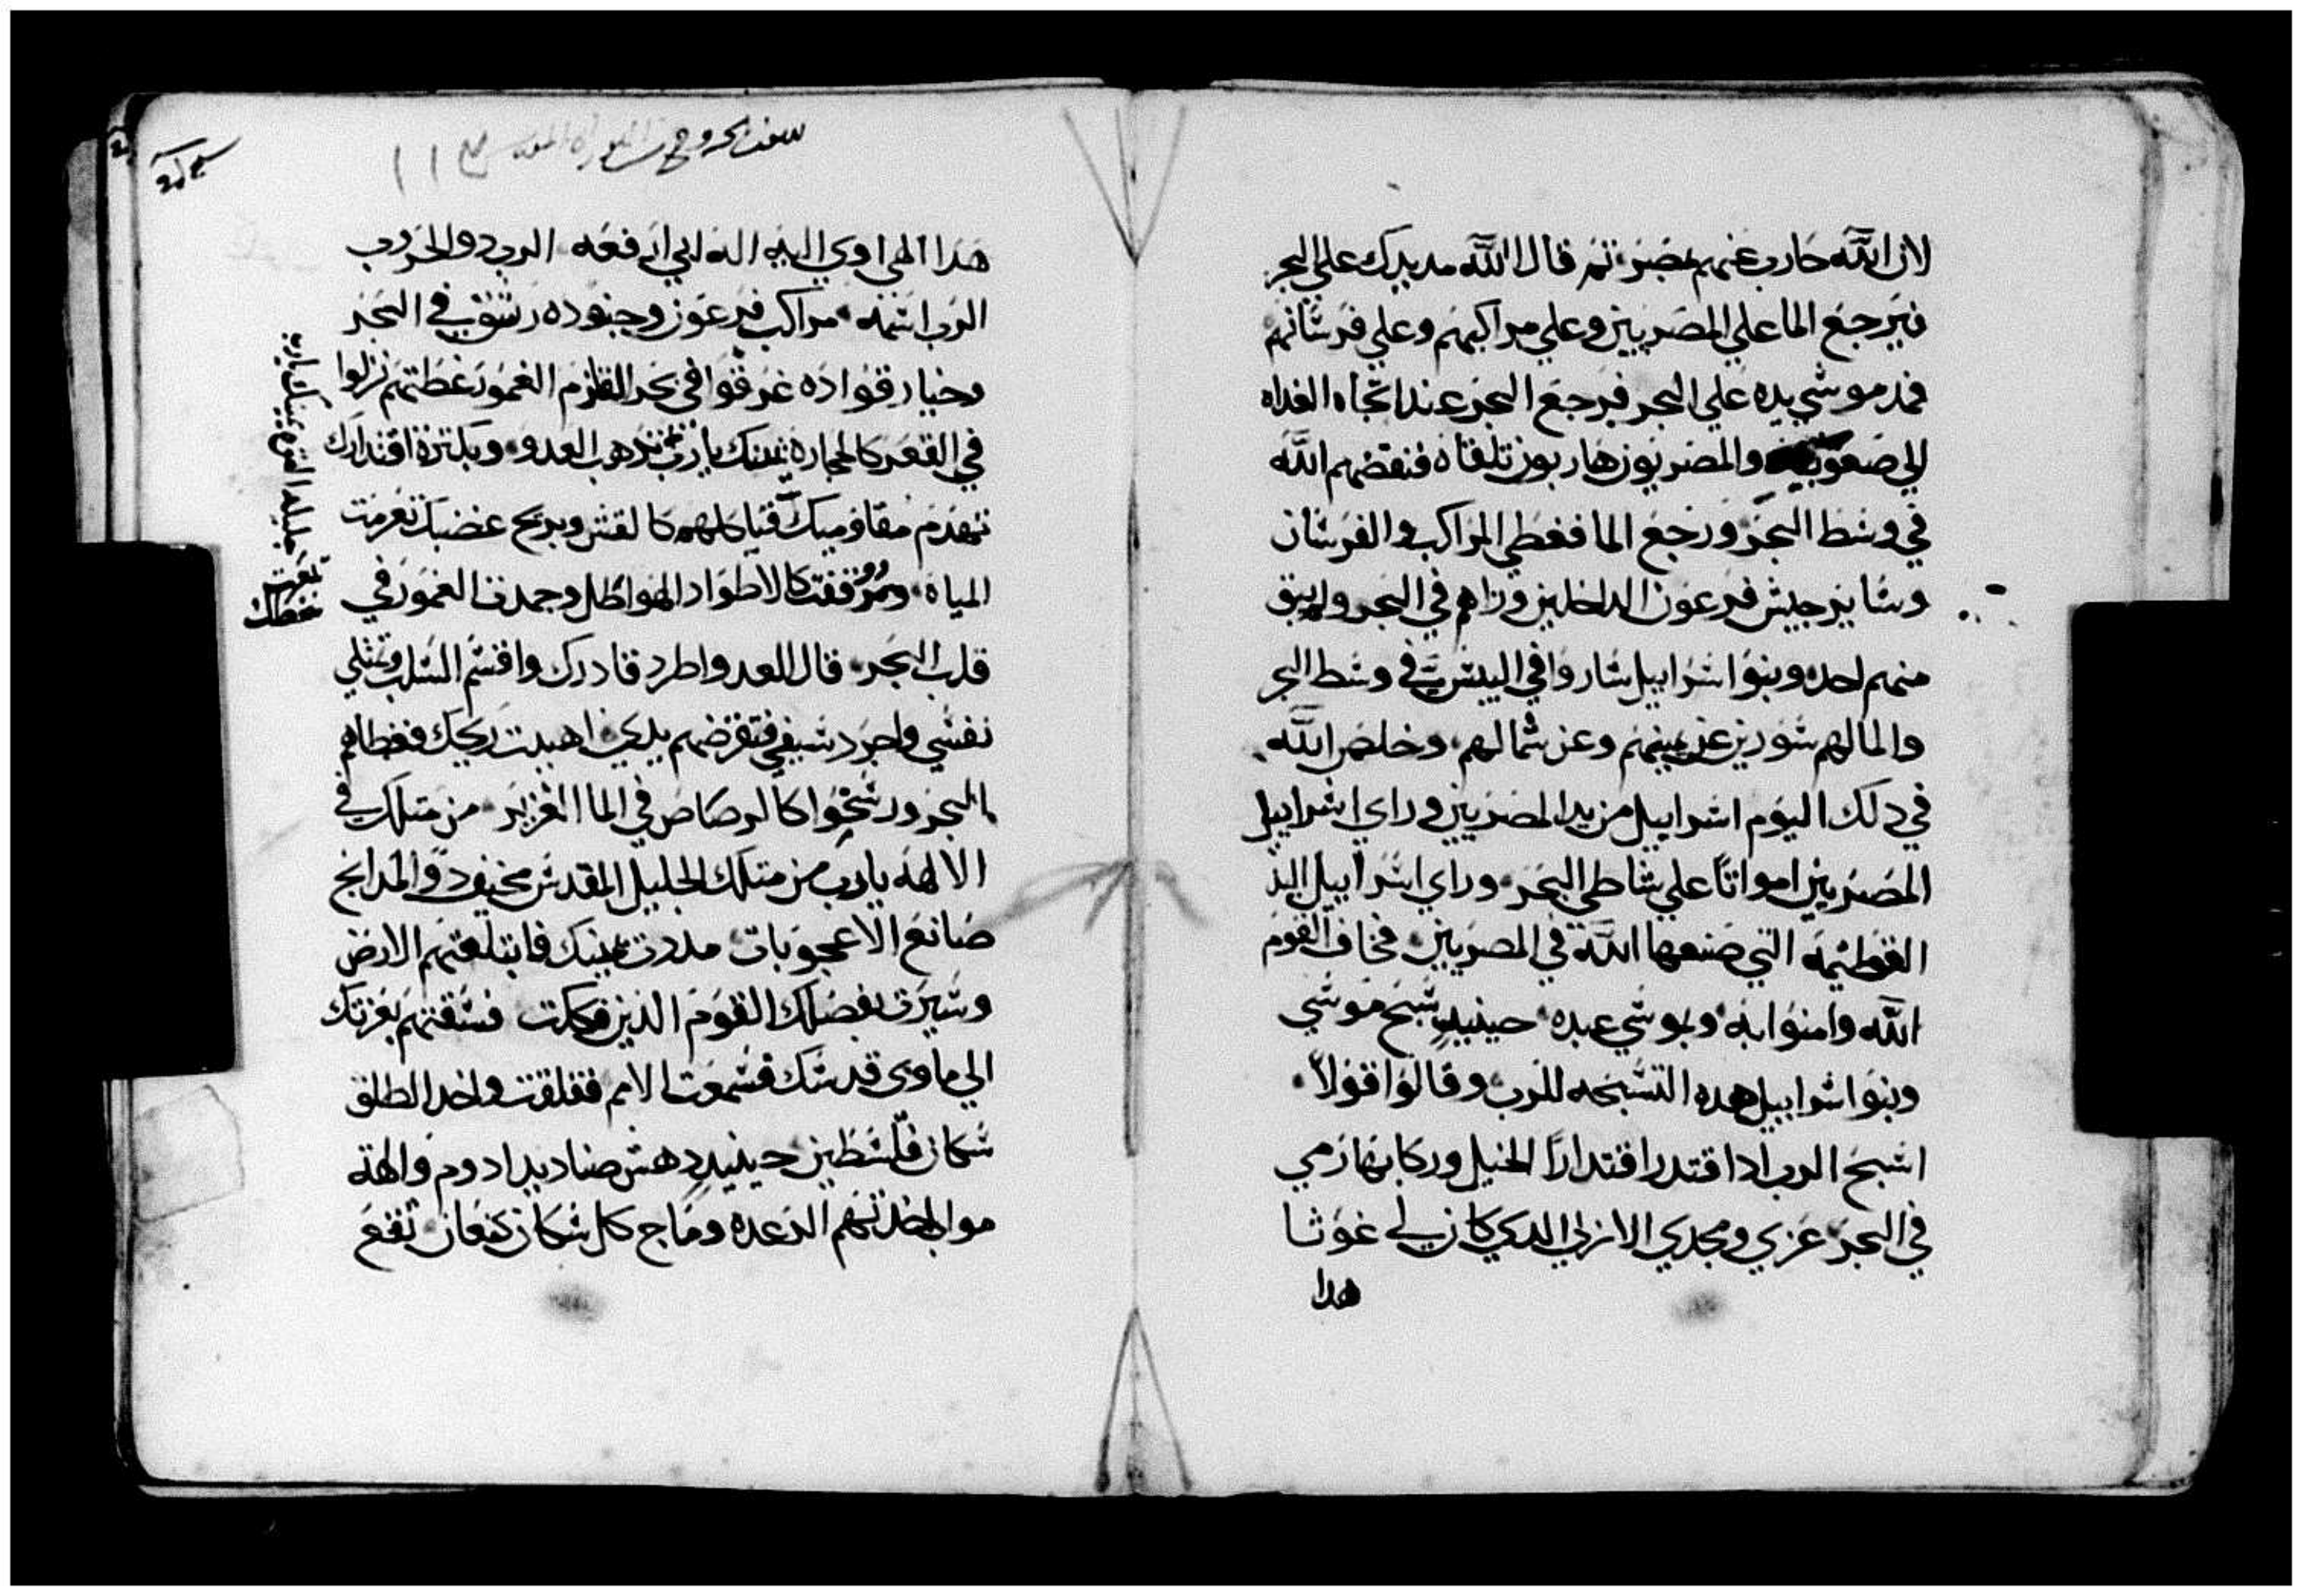 لان الله حارب عنهم بمصر ثم قال الله مد يدك علي البحر
فيرجع الما علي المصريين وعلي مراكبهم وعلي فرسانهم
فمد موسي يده علي البحر فرجع البحر عند اتجاه الغداه
الي صعوبته والمصريون هاربون تلقاه فنفضهم الله
في وسط البحر ورجع الما فغطي المراكب والفرسان
وساير جيش فرعون الداخلين وراهم في البحر ولم يبق
منهم احد وبنوا اسراييل ساروا في اليبس في وسط البحر
والما لهم سورين عن يمينهم وعن شمالهم وخلص الله
في دلك اليوم اسراييل من يد المصريين وراي اسراييل
المصريين امواتاً علي شاطي البحر وراي اسراييل اليد
العظيمه التي صنعها الله في المصريين فخاف القوم
الله وامنوا به وبموسي عبده حينيدٍ سبح موسي
وبنوا اسراييل هده التسبحه للرب وقالوا قولاً
اسبح الرب ادا اقتدر اقتداراً الخيل وركابها رمي
في البحر عزي ومجدي الازلي الدي كان لي غوثا
هدا
سفر خروج من التوراه
هدا الهي اوي اليه اله ابي ارفعه الرب دو الحروب
الرب اسمه مراكب فرعون وجنوده رسوب في البحر
وخيار قواده غرقوا في بحر القلزم الغمور غطتهم نزلوا
في القعر كالحجاره يمينك يارب ترهب العدو وبكثرة اقتدارك
تهدم مقاوميك فتاكلهم كالقش وبريح غضبك تعرمت
المياه ووقفت كالاطواد الهواطل وجمدت الغمور في
قلب البحر قال العدو اطرد فادرك واقسم السلب وتمتلي
نفسي واجرد سيفي فتقرضهم يدي اهبيت ريحك فغطاهم
البحر ورسخوا كالرصاص في الما الغزير من متلك في
الالهه يارب من متلك الجليل المقدس مخيف دو المدايح
صانع الاعجوبات مددت يمينك فابتلعتهم الارض
وسيرت بفضلك القوم الذين فككت فسقتهم بعزتك
الي ماوي قدسك فسمعت الامم فقلقت واخد الطلق
سكان فلسطين حينيدٍ دهش صناديد ادوم والهة
مواب اخدتهم الرعده وماج كل سكان كنعان تقع